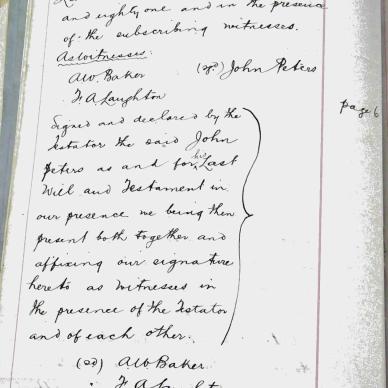 and eighty one and in the presence
of the subscribing witnesses.
As witnesses:
AW. Baker (sd) John Peters
F. A Laughton
page 6
Signed and declared by the
Testator the said John
Peters as and for his Last
Will and Testament in
our presence we being then
present both together and
affixing our signature
hereto as witnesses in
the presence of the Testator
and of each other.
(sd) AW Baker